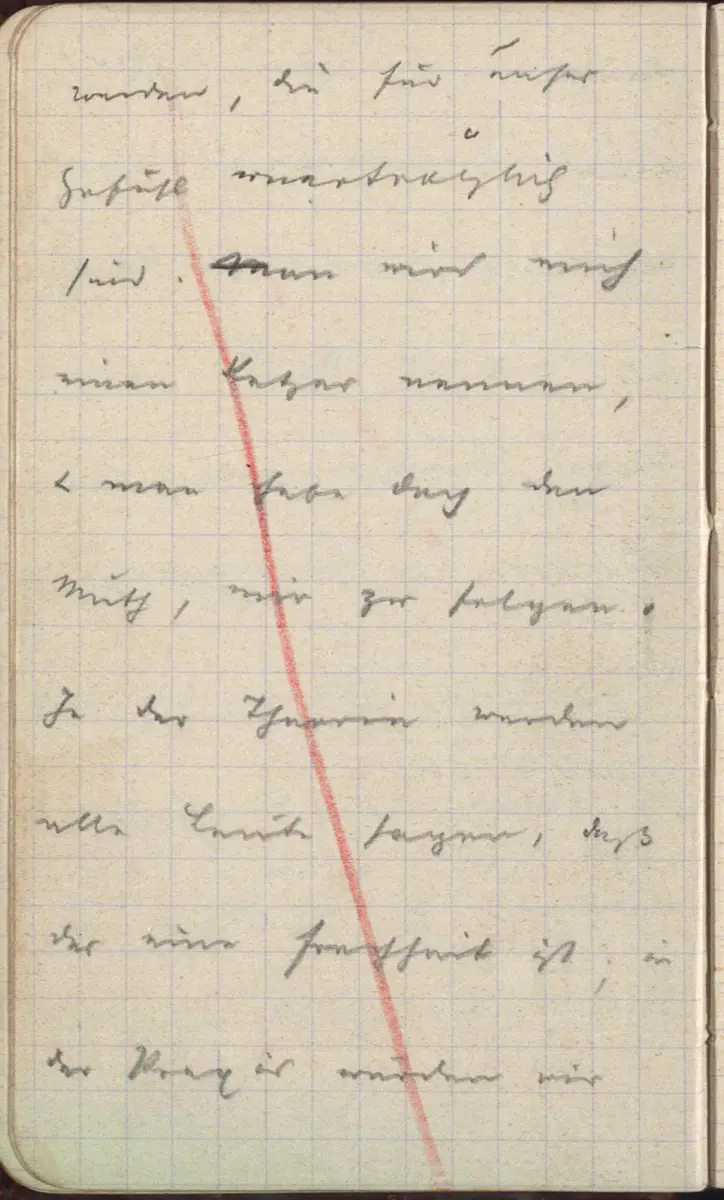 werden, die für unser
Gefühl unerträglich
sind. Man wird mich
einen Ketzer nennen,
& man habe doch den
Muth, mir zu folgen.
In der Theorie werden
alle Leute sagen, daß
das eine Frechheit ist, in
der Praxis würden wir